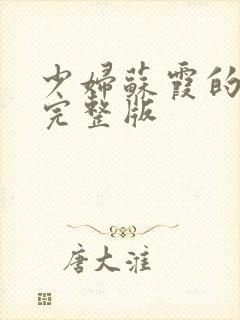 少婦蘇霞的
完整版
唐大淮